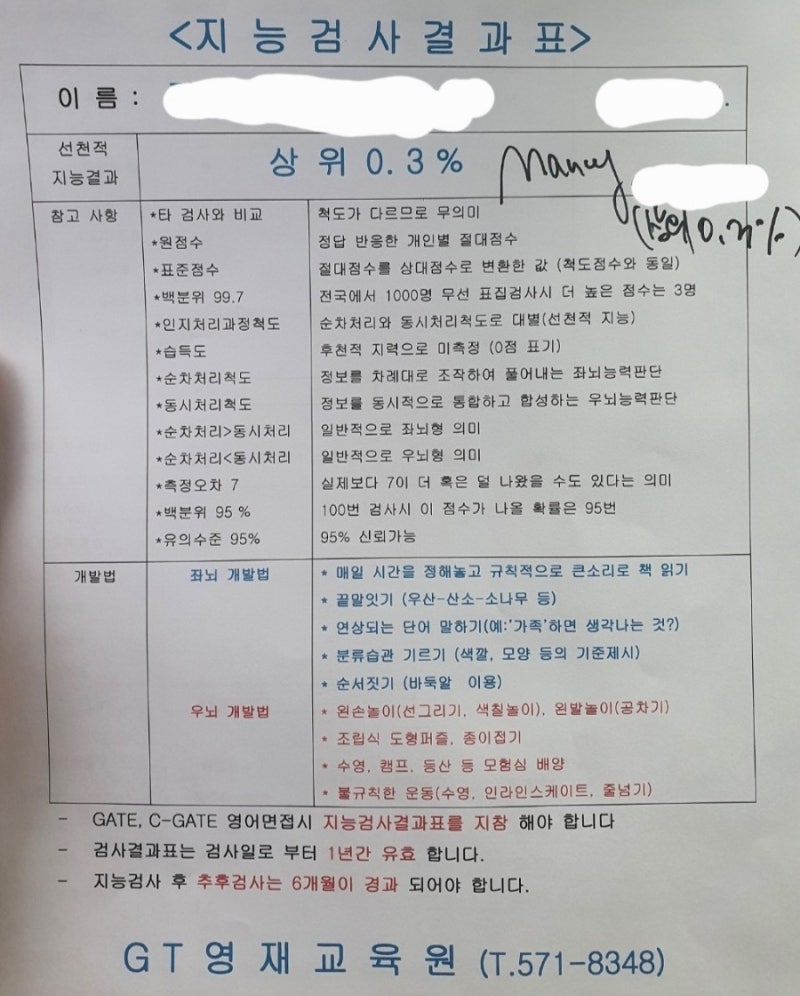 <지능검사결과표>
이 름 :
선천적
지능결과
상 위 0. 3 %
Nancy
(상위 0.3%)
참고 사항
*타 검사와 비교 척도가 다르므로 무의미
*원점수 정답 반응한 개인별 절대점수
*표준점수 절대점수를 상대점수로 변환한 값 (척도점수와 동일)
*백분위 99.7 전국에서 1000명 무선 표집검사시 더 높은 점수는 3명
*인지처리과정척도 순차처리와 동시처리척도로 대별(선천적 지능)
*습득도 후천적 지력으로 미측정 (0점 표기)
*순차처리척도 정보를 차례대로 조작하여 풀어내는 좌뇌능력판단
*동시처리척도 정보를 동시적으로 통합하고 합성하는 우뇌능력판단
*순차처리>동시처리 일반적으로 좌뇌형 의미
*순차처리<동시처리 일반적으로 우뇌형 의미
*측정오차 7 실제보다 7이 더 혹은 덜 나왔을 수도 있다는 의미
*백분위 95 % 100번 검사시 이 점수가 나올 확률은 95번
*유의수준 95% 95% 신뢰가능
개발법
좌뇌 개발법 * 매일 시간을 정해놓고 규칙적으로 큰소리로 책 읽기
* 끝말잇기 (우산-산소-소나무 등)
* 연상되는 단어 말하기(예:'가족'하면 생각나는 것?)
* 분류습관 기르기 (색깔, 모양 등의 기준제시)
* 순서짓기 (바둑알 이용)
우뇌 개발법 * 왼손놀이(선그리기, 색칠놀이), 왼발놀이(공차기)
* 조립식 도형퍼즐, 종이접기
* 수영, 캠프, 등산 등 모험심 배양
* 불규칙한 운동(수영, 인라인스케이트, 줄넘기)
- GATE, C-GATE 영어면접시 지능검사결과표를 지참 해야 합니다
- 검사결과표는 검사일로 부터 1년간 유효 합니다.
- 지능검사 후 추후검사는 6개월이 경과 되어야 합니다.
GT영재교육원 (T.571-8348)